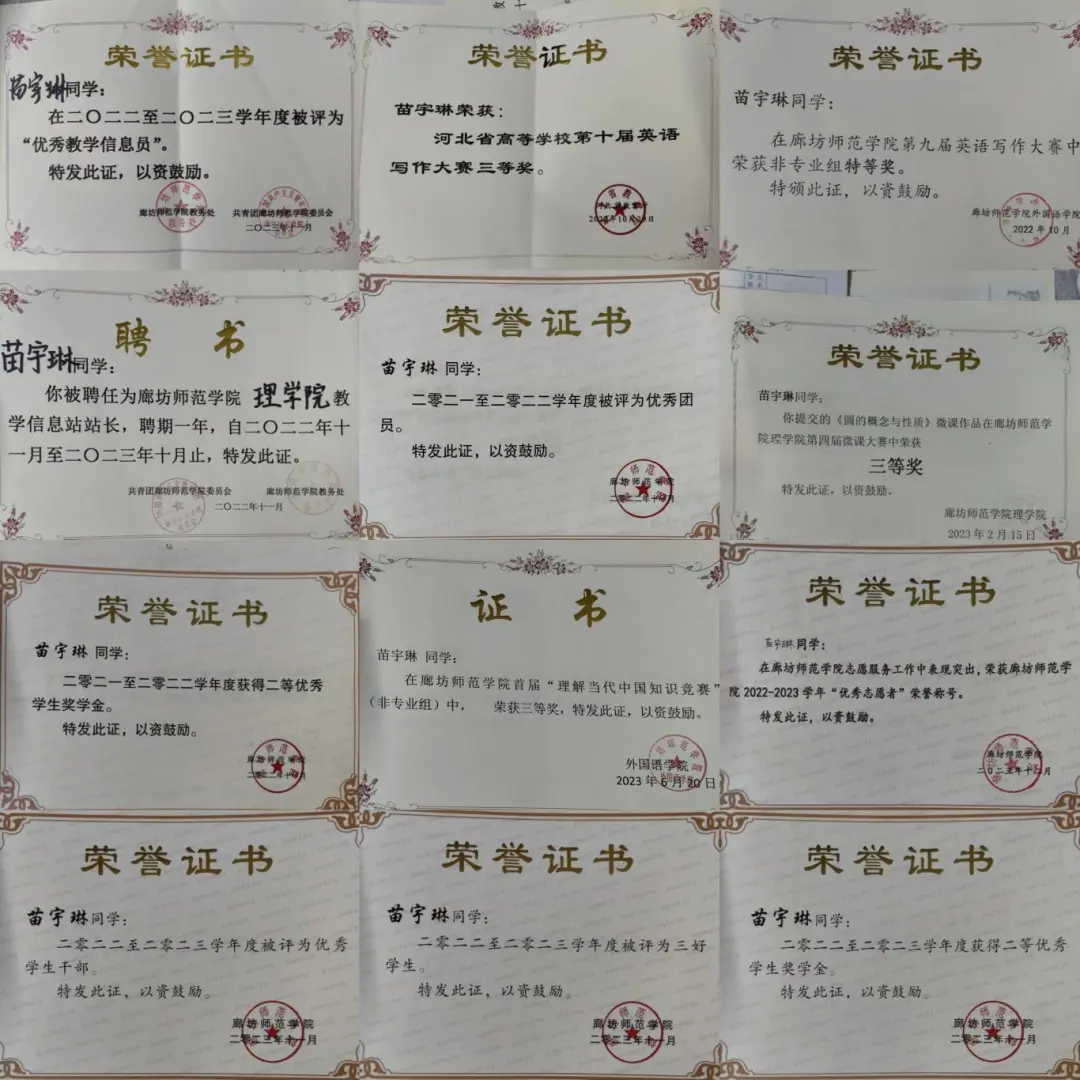 荣誉证书
苗宇琳同学：
在二〇二二至二〇二三学年度被评为
“优秀教学信息员”。
特发此证，以资鼓励。
廊坊师范学院教务处 共青团廊坊师范学院委员会
二〇二三年十一月
荣誉证书
苗宇琳荣获：
河北省高等学校第十届英语
写作大赛三等奖。
荣誉证书
苗宇琳同学：
在廊坊师范学院第九届英语写作大赛中
荣获非专业组特等奖。
特颁此证，以资鼓励。
廊坊师范学院外国语学院
2022年10月
聘 书
苗宇琳同学：
你被聘任为廊坊师范学院 理学院教
学信息站站长，聘期一年，自二〇二二年十
一月至二〇二三年十月止，特发此证。
共青团廊坊师范学院委员会 廊坊师范学院教务处
二〇二二年十一月
荣誉证书
苗宇琳 同学：
二零二一至二零二二学年度被评为优秀团
员。
特发此证，以资鼓励。
廊坊师范学院
荣誉证书
苗宇琳同学：
你提交的《圆的概念与性质》微课作品在廊坊师范学
院理学院第四届微课大赛中荣获
三等奖
特发此证，以资鼓励。
廊坊师范学院理学院
2023年2月15日
荣誉证书
苗宇琳 同学：
二零二一至二零二二学年度获得二等优秀
学生奖学金。
特发此证，以资鼓励。
廊坊师范学院
证 书
苗宇琳 同学：
在廊坊师范学院首届“理解当代中国知识竞赛”
（非专业组）中， 荣获三等奖，特发此证，以资鼓励。
外国语学院
2023年6月20日
荣誉证书
苗宇琳同学：
在廊坊师范学院志愿服务工作中表现突出，荣获廊坊师范学
院2022-2023学年“优秀志愿者”荣誉称号。
特发此证，以资鼓励。
廊坊师范学院
荣誉证书
苗宇琳同学：
二零二二至二零二三学年度被评为优秀
学生干部。
特发此证，以资鼓励。
廊坊师范学院
二零二三年十一月
荣誉证书
苗宇琳同学：
二零二二至二零二三学年度被评为三好
学生。
特发此证，以资鼓励。
廊坊师范学院
二零二三年十一月
荣誉证书
苗宇琳同学：
二零二二至二零二三学年度获得二等优秀
学生奖学金。
特发此证，以资鼓励。
廊坊师范学院
二零二三年十一月